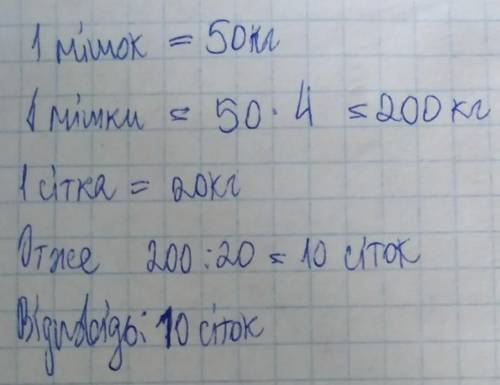 1 мішок = 50кг
4 мішки = 50·4 = 200 кг
1 сітка = 20кг
Отже 200:20 = 10 сіток
Відповідь: 10 сіток